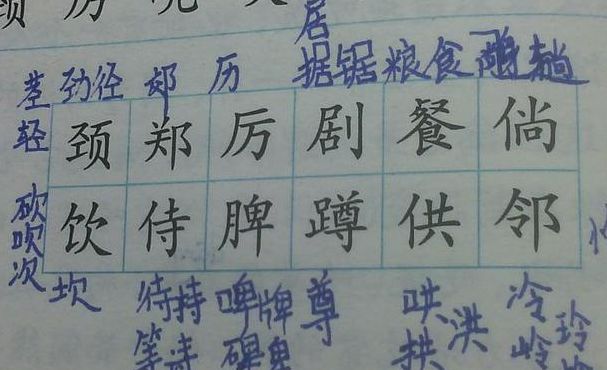 居
茎 劲径 郊 历 据锯 粮食 趟
轻 颈 郑 厉 剧 餐 倘
砍吹次 饮 侍 脾 蹲 供 邻
坎 待持 啤牌 尊 哄洪 冷玲
等诗 碑卑 拱 岭